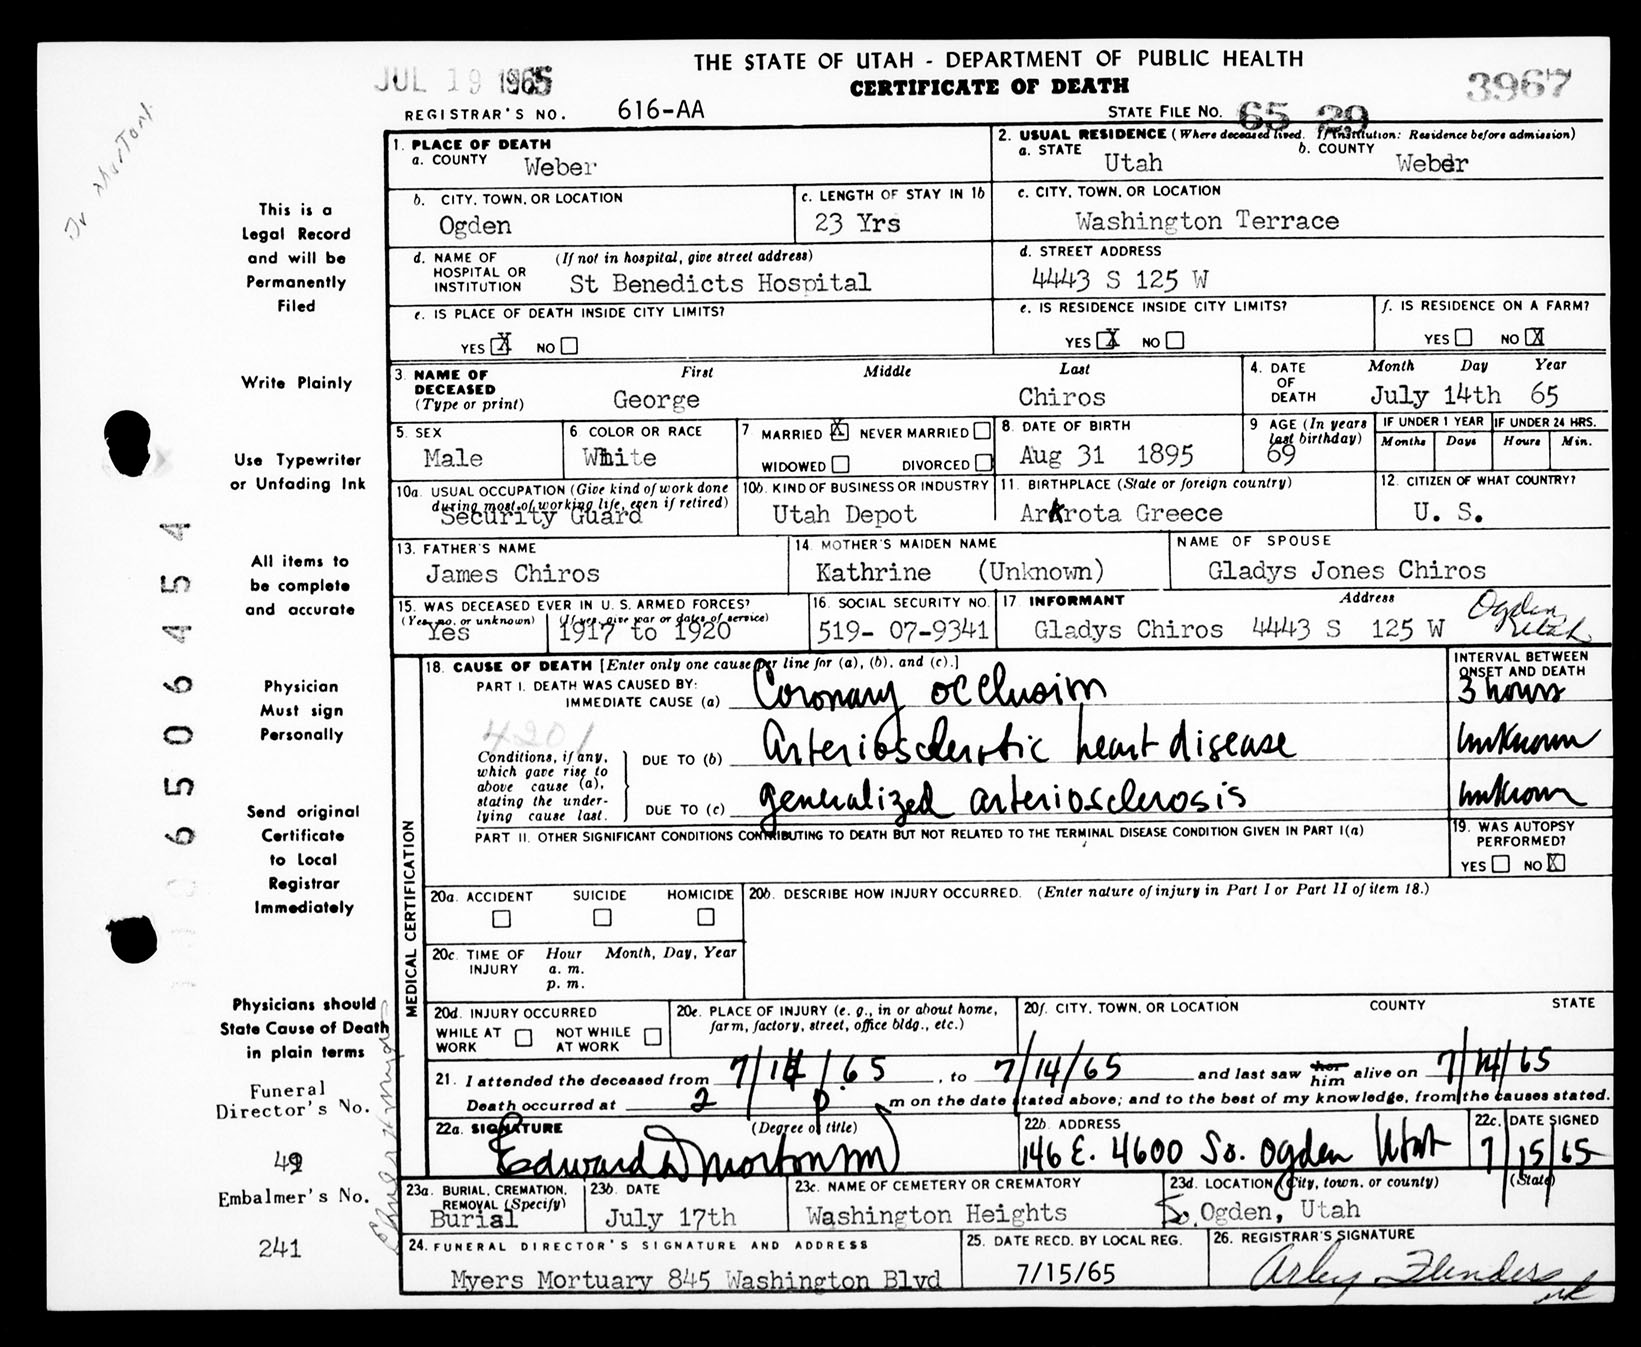 THE STATE OF UTAH - DEPARTMENT OF PUBLIC HEALTH
JUL 19 1965
CERTIFICATE OF DEATH
3967
REGISTRAR'S NO. 616-AA
STATE FILE NO. 65 29
1. PLACE OF DEATH
a. COUNTY Weber
2. USUAL RESIDENCE (Where deceased lived. If institution: Residence before admission)
a. STATE Utah b. COUNTY Weber
b. CITY, TOWN, OR LOCATION Ogden
c. LENGTH OF STAY IN 1b 23 Yrs
c. CITY, TOWN, OR LOCATION Washington Terrace
d. NAME OF HOSPITAL OR INSTITUTION (If not in hospital, give street address) St Benedicts Hospital
d. STREET ADDRESS 4443 S 125 W
e. IS PLACE OF DEATH INSIDE CITY LIMITS?
YES X NO
e. IS RESIDENCE INSIDE CITY LIMITS?
YES X NO
f. IS RESIDENCE ON A FARM?
YES NO X
3. NAME OF DECEASED (Type or print) First Middle Last
George Chiros
4. DATE OF DEATH Month Day Year
July 14th 65
5. SEX Male
6 COLOR OR RACE White
7 MARRIED X NEVER MARRIED
WIDOWED DIVORCED
8. DATE OF BIRTH Aug 31 1895
9 AGE (In years last birthday) 69
IF UNDER 1 YEAR Months Days
IF UNDER 24 HRS. Hours Min.
10a. USUAL OCCUPATION (Give kind of work done during most of working life, even if retired) Security Guard
10b. KIND OF BUSINESS OR INDUSTRY Utah Depot
11. BIRTHPLACE (State or foreign country) Arkrota Greece
12. CITIZEN OF WHAT COUNTRY? U. S.
13. FATHER'S NAME James Chiros
14. MOTHER'S MAIDEN NAME Kathrine (Unknown)
NAME OF SPOUSE Gladys Jones Chiros
15. WAS DECEASED EVER IN U. S. ARMED FORCES?
(Yes, no. or unknown) (If yes, give war or dates of service)
Yes 1917 to 1920
16. SOCIAL SECURITY NO. 519- 07-9341
17. INFORMANT Address
Gladys Chiros 4443 S 125 W Ogden Utah
18. CAUSE OF DEATH [Enter only one cause per line for (a), (b), and (c).]
INTERVAL BETWEEN ONSET AND DEATH
PART I. DEATH WAS CAUSED BY:
IMMEDIATE CAUSE (a) Coronary occlusion 3 hours
4201
Conditions, if any, which gave rise to above cause (a), stating the underlying cause last.
DUE TO (b) Arteriosclerotic heart disease unknown
DUE TO (c) generalized arteriosclerosis unknown
PART II. OTHER SIGNIFICANT CONDITIONS CONTRIBUTING TO DEATH BUT NOT RELATED TO THE TERMINAL DISEASE CONDITION GIVEN IN PART I(a)
19. WAS AUTOPSY PERFORMED?
YES NO X
MEDICAL CERTIFICATION
20a. ACCIDENT SUICIDE HOMICIDE
20b. DESCRIBE HOW INJURY OCCURRED. (Enter nature of injury in Part I or Part II of item 18.)
20c. TIME OF INJURY Hour Month, Day, Year
a. m.
p. m.
20d. INJURY OCCURRED
WHILE AT WORK NOT WHILE AT WORK
20e. PLACE OF INJURY (e. g., in or about home, farm, factory, street, office bldg., etc.)
20f. CITY, TOWN, OR LOCATION COUNTY STATE
21. I attended the deceased from 7/14/65, to 7/14/65 and last saw her him alive on 7/14/65
Death occurred at 2 p m on the date stated above; and to the best of my knowledge, from the causes stated.
22a. SIGNATURE (Degree or title)
Edward D Morton MD
22b. ADDRESS 146 E. 4600 So. Ogden Utah
22c. DATE SIGNED 7/15/65
23a. BURIAL, CREMATION, REMOVAL (Specify) Burial
23b. DATE July 17th
23c. NAME OF CEMETERY OR CREMATORY Washington Heights
23d. LOCATION (City, town, or county) (State)
So. Ogden, Utah
24. FUNERAL DIRECTOR'S SIGNATURE AND ADDRESS
Myers Mortuary 845 Washington Blvd
25. DATE RECD. BY LOCAL REG. 7/15/65
26. REGISTRAR'S SIGNATURE
Arley Flinders
This is a
Legal Record
and will be
Permanently
Filed
Write Plainly
Use Typewriter
or Unfading Ink
All items to
be complete
and accurate
Physician
Must sign
Personally
Send original
Certificate
to Local
Registrar
Immediately
Physicians should
State Cause of Death
in plain terms
Funeral
Director's No.
49
Embalmer's No.
241
Dr Morton
6 5 0 6 4 5 4